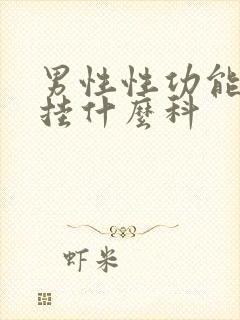 男性性功能
挂什麼科
虾米